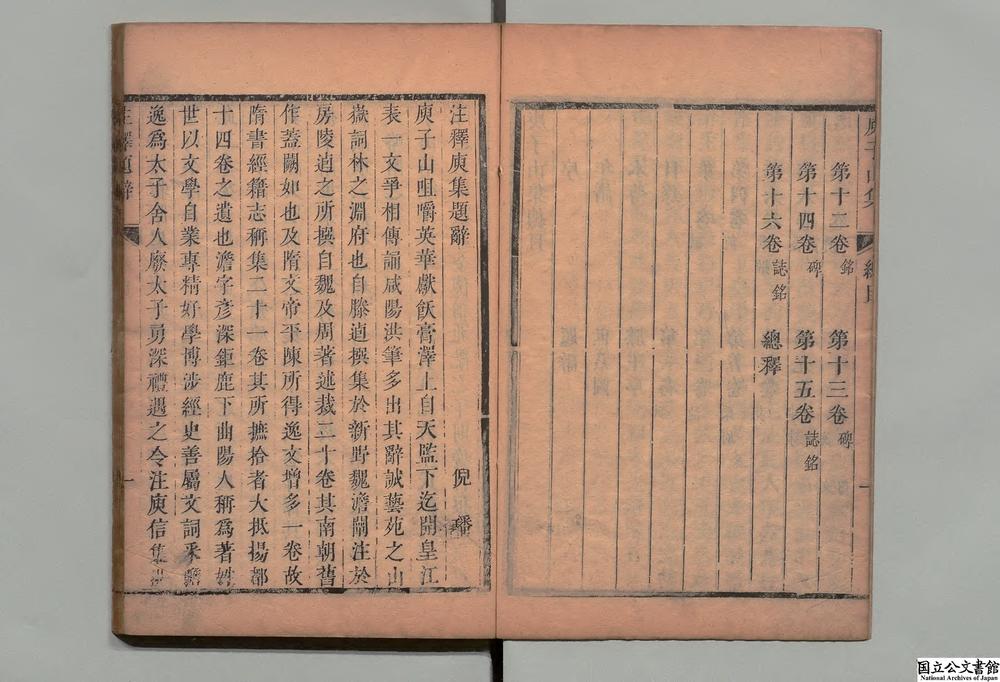 庾子山集 總目 一
第十二卷 銘 第十三卷 碑
第十四卷 碑 第十五卷 誌銘
第十六卷 誌銘 總釋
注釋庾集題辭
倪璠
庾子山咀嚼英華厭飫膏澤上自天監下迄開皇江
表一文爭相傳誦咸陽洪筆多出其辭誠藝苑之山
嶽詞林之淵府也自滕逌撰集於新野魏澹闡注於
房陵逌之所撰自魏及周著述裁二十卷其南朝舊
作蓋闕如也及隋文帝平陳所得逸文增多一卷故
隋書經籍志稱集二十一卷其所摭拾者大抵揚都
十四卷之遺也澹字彦深鉅鹿下曲陽人稱爲著姓
世以文學自業專精好學博涉經史善屬文詞釆贍
逸爲太子舍人廢太子勇深禮遇之令注庾信集
注釋題辭 一
国立公文書館
National Archives of Japan